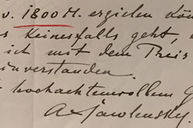 v. 1800 M. erzielen kön
s keinesfalls geht, so
ich mit dem Preis
einverstanden.
hochachtenvollem G
A. Jawlensky.